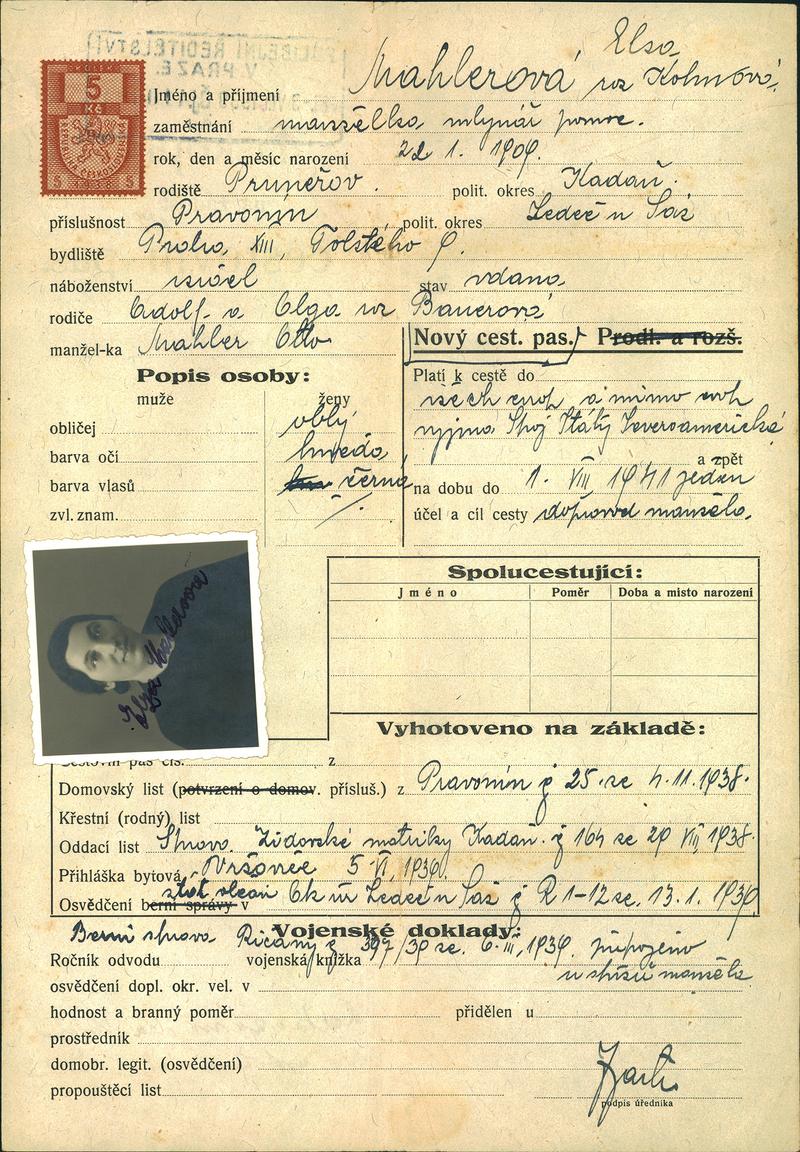 POLICEJNÍ ŘEDITELSTVÍ
V PRAZE.
5
Kč
Elsa
Jméno a příjmení Mahlerová roz Kohnová.
zaměstnání manželka mlynář pomoc.
rok, den a měsíc narození 22 1. 1909.
rodiště Prunéřov. polit. okres Kadaň.
příslušnost Pravonín polit. okres Ledeč n Sáz
bydliště Praha XIII, Tolstého 9.
náboženství israel stav vdaná
rodiče Adolf a Olga roz Bauerová
manžel-ka Mahler Otto
Nový cest. pas. Prodl. a rozš.
Popis osoby:
muže ženy
obličej oblý
barva očí hnědá
barva vlasů černá
zvl. znam. /.
Platí k cestě do
všech evrop. a mimo evrop
vyjma Spoj Státy Severoamerické
a zpět
na dobu do 1. VII 1941 jeden
účel a cíl cesty doprovod manžela.
Elsa Mahlerová
Spolucestující:
Jméno Poměr Doba a místo narození
Vyhotoveno na základě:
Cestovní pas čís. z
Domovský list (potvrzení o domov. přísluš.) z Pravonín č 25. ze 4. 11. 1938.
Křestní (rodný) list
Oddací list Správa Židovské matriky Kadaň. č 164 ze 29 VII, 1938.
Přihláška bytová Vršovice 5 VI, 1939.
Osvědčení berní správy v Ok úř Ledeč n Sáz č R 1-12 ze. 13. 1. 1939.
Berní správa Říčany č 397/39 ze. 6. III, 1939. připojeno
u spisů manžela
Vojenské doklady:
Ročník odvodu vojenská knížka
osvědčení dopl. okr. vel. v
hodnost a branný poměr přidělen u
prostředník
domobr. legit. (osvědčení)
propouštěcí list
podpis úředníka